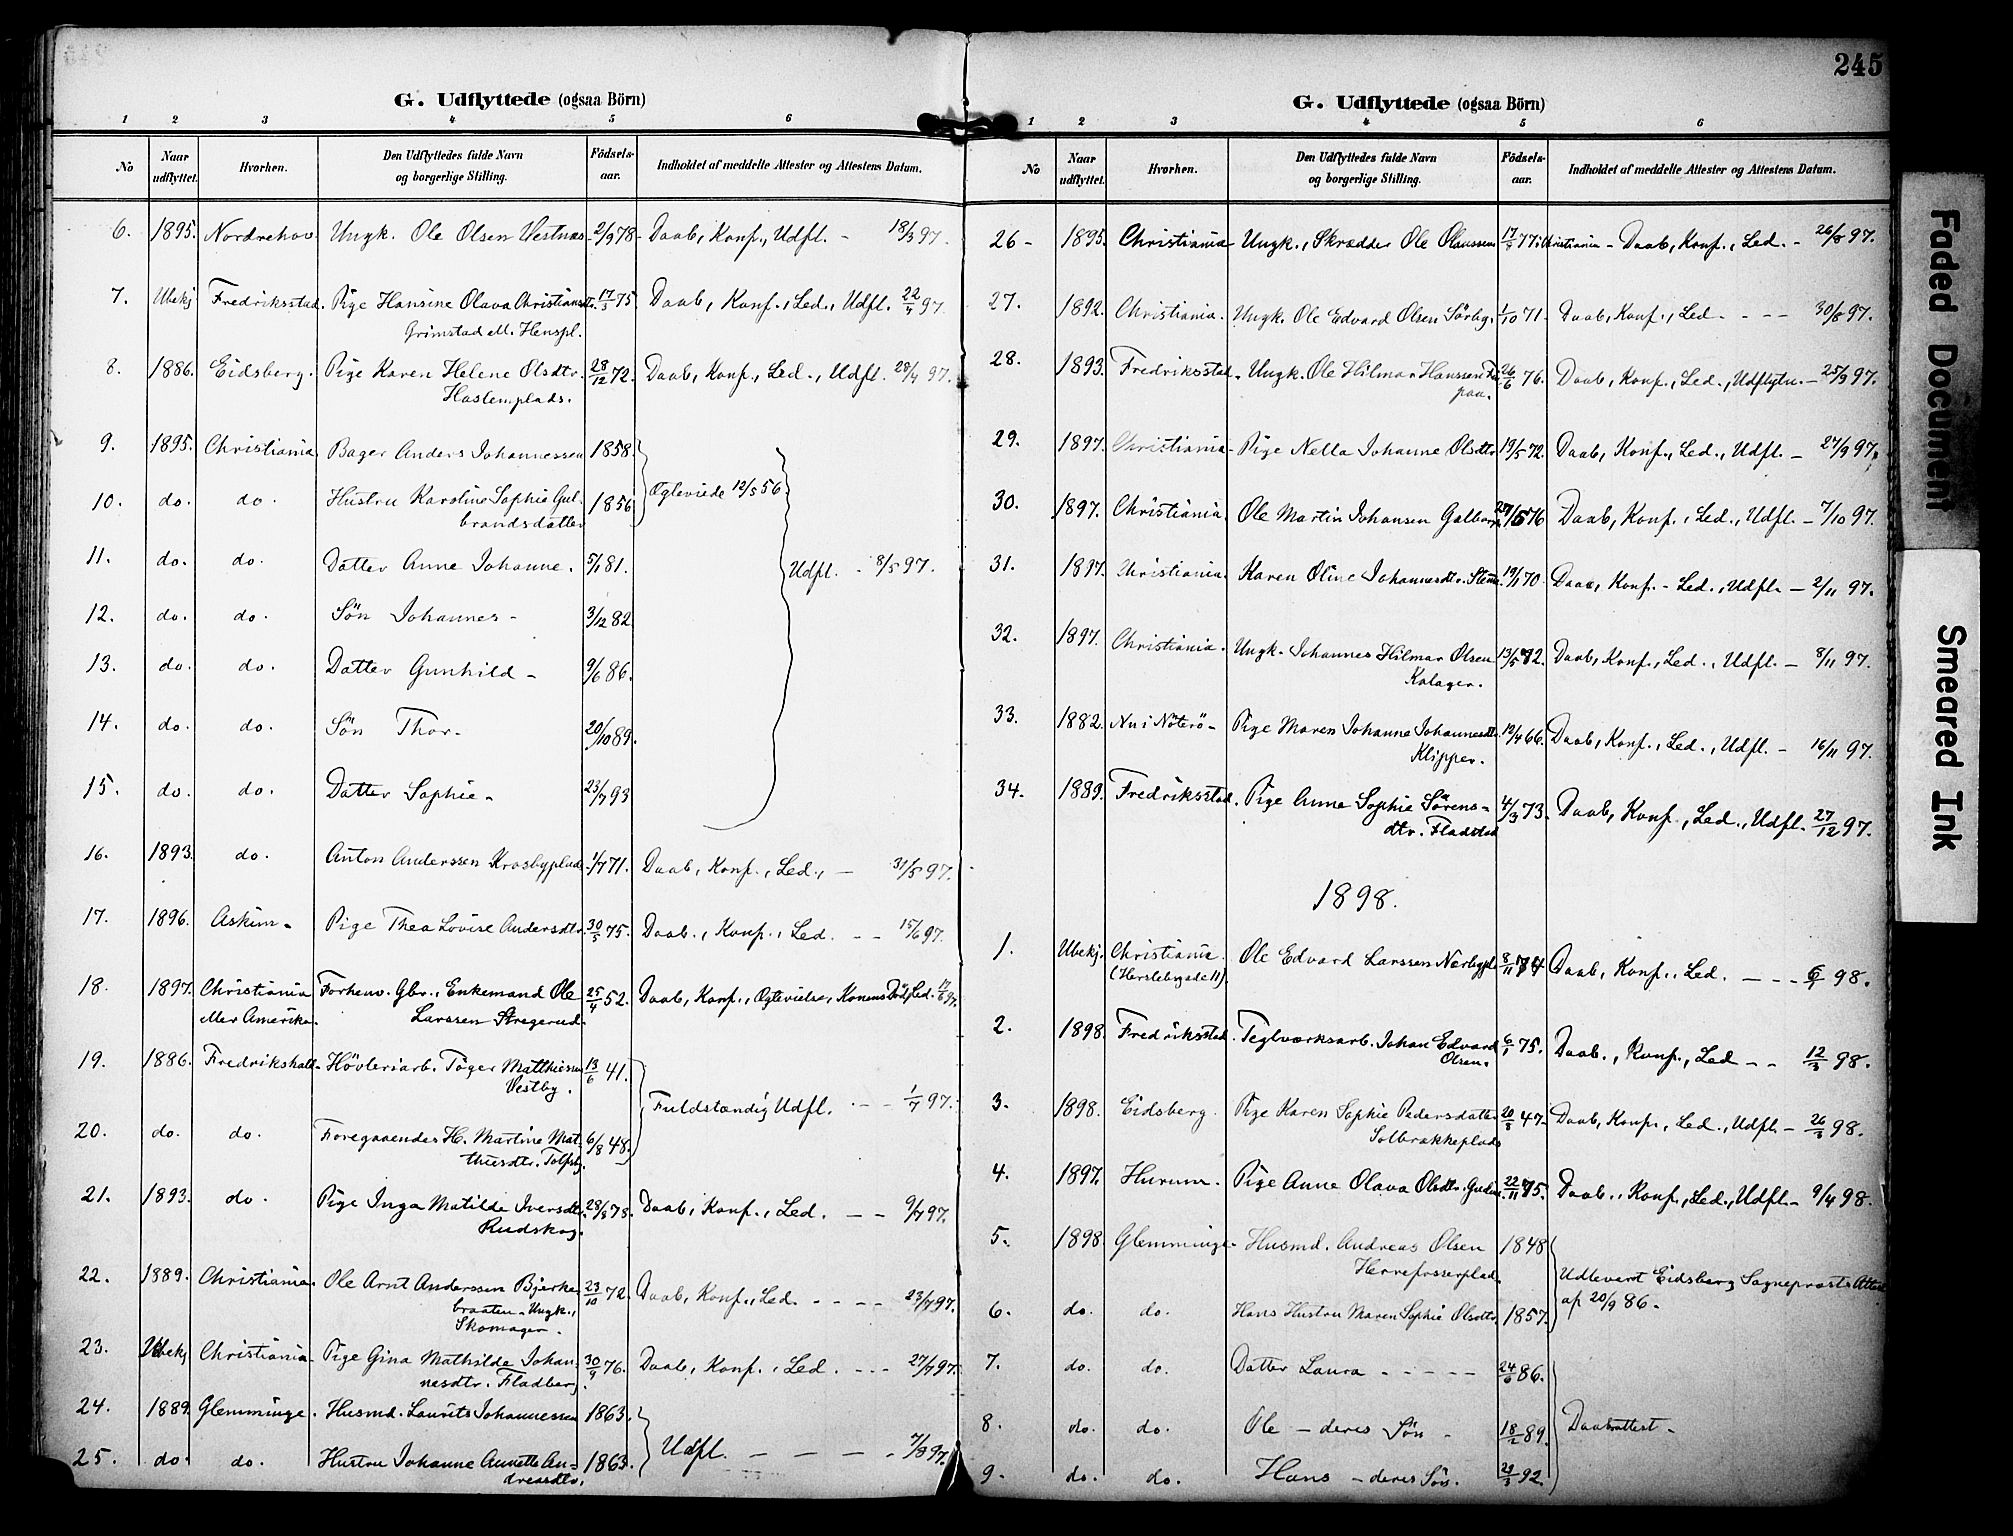 245
G. Udflyttede (ogsaa Börn)
1 2 3 4 5 6
No Naar udflyttet. Hvorhen. Den Udflyttedes fulde Navn og borgerlige Stilling. Födselsaar. Indholdet af meddelte Attester og Attestens Datum.
6. 1895. Nordrehov Ungk. Ole Olsen Vestnæs 2/9 78 Daab, Konf., Udfl. - 18/3 97.
7. Ubekj. Fredriksstad. Pige Hansine Olava Christiansdtr. 17/3 75. Daab, Konf., Led., Udfl. 22/4 97.
Grimstad ell. Henspl.
8. 1886. Eidsberg. Pige Karen Helene Olsdtr. 28/12 72. Daab, Konf., Led., Udfl. 28/4 97.
Haslemplads.
9. 1895. Christiania Bager Anders Johannessen 1858.
10. do. do. Hustru Karoline Sophie Gul- 1856 Ogteviede 12/5 56
brandsdatter
11. do. do. Datter Anne Johanne. 5/1 81. Udfl. - 8/5 97.
12. do. do. Sön Johannes - 3/12 82
13. do. do. Datter Gunhild - 9/6 86.
14. do. do. Sön Thor- 20/10 89.
15. do. do. Datter Sophie - 23/7 93
16. 1893. do. Anton Anderssen Krosbyplads 1/7 71. Daab, Konf., Led., — 31/5 97.
17. 1896. Askim - Pige Thea Lovise Andersdtr. 30/5 75. Daab., Konf., Led. - - 15/6 97.
18. 1897. Christiania Forhenv. Gbr., Enkemand Ole 25/4 52. Daab, Konf., Ogtevielse, Konens Död, Led. 17/6 97.
eller Amerika. Larssen Stregerud.
19. 1886. Fredrikshald. Hövleriarb. Töger Matthiesen 13/6 41.
Vestby.
Fuldstændig Udfl. - - 1/7 97.
20. do. do. Foregaaendes H. Martine Mat- 6/8 48.
thiesdtr. Tolfsby.
21. 1893. do. Pige Inga Matilde Iversdtr. 28/8 78. Daab, Konf., Led. - - 9/7 97.
Rudskog.
22. 1889. Christiania. Ole Arnt Anderssen Bjerke- 23/10 72. Daab, Konf., Led. - - - - 23/7 97.
braaten - Ungk.,
Skomager.
23. Ubekj Christiania Pige Gina Mathilde Johan- 30/9 76. Daab, Konf., Led. - - - 27/7 97.
nesdtr. Fladberg.
24. 1889 Glemminge. Husmd. Laurits Johannessen 1863.
Udfl. - - - - 7/8 97.
25. do. do. Hustru Johanne Annette An- 1863.
dreasdtr.
G. Udflyttede (ogsaa Börn)
1 2 3 4 5 6
No Naar udflyttet. Hvorhen. Den Udflyttedes fulde Navn og borgerlige Stilling. Födselsaar. Indholdet af meddelte Attester og Attestens Datum.
26 - 1895. Christiania Ungk., Skrædder Ole Olaussen 77. Christiania - Daab, Konf., Led. - 26/8 97.
27. 1892. Christiania. Ungk. Ole Edvard Olsen Sörby. 1/10 71. Daab, Konf., Led. - - - 30/8 97.
28. 1893. Fredriksstad. Ungk. Ole Hilmar Hanssen 26/6 76. Daab, Konf., Led., Udflytn. - 25/9 97.
29. 1897. Christiania - Pige Nella Johanne Olsdtr. 19/5 72. Daab, Konf., Led., Udfl. - 27/9 97.
30. 1897. Christiania. Ole Martin Johansen 76 Daab, Konf., Led., Udfl. - 7/10 97.
31. 1897. Christiania. Karen Oline Johannesdtr. 70. Daab, Konf. - Led., Udfl. - 2/11 97.
32. 1897. Christiania. Ungk. Johannes Hilmar Olsen 13/5 72. Daab, Konf., Led., Udfl. - 8/11 97.
Kalager.
33. 1882. Nu i Nöterö - Pige Maren Johanne Johannesdtr. 12/4 66. Daab, Konf., Led., Udfl. - 16/11 97.
Klipper.
34. 1889. Fredriksstad. Pige Anna Sophie Sörens- 4/3 73. Daab, Konf., Led., Udfl. 27/12 97.
dtr. Fladstad
1898.
1. Ubekj. Christiania. Ole Edvard Larssen Nærbypl. 8/11 74 Daab, Konf., Led. - - - 6/1 98.
(Herslebsgade 11).
2. 1898. Fredriksstad. Teglværksarb. Johan Edvard 6/1 75. Daab., Konf., Led - - 12/3 98.
Olsen.
3. 1898. Eidsberg. Pige Karen Sophie Pedersdatter 20/8 47. Daab, Konf., Led., Udfl. - 26/3 98.
Solbrækkeplads
4. 1897. Hurum. Pige Anne Olava Olsdtr. 22/11 75. Daab., Konf., Led., Udfl. - 9/4 98.
5. 1898. Glemminge. Husmd. Andreas Olsen 1848
Herrefosserplads
Udlevert Eidsberg Sognepræsts Attest
6. do. do. Hans Hustru Maren Sophie Olsdtr. 1857. af 20/9 86.
7. do. do. Datter Laura - - - - - 24/6 86.
8. do. do. Ole - deres Sön - 18/2 89. Daabsattest -
9. do. do. Hans - deres Sön. 92.
Faded Document
Smeared Ink